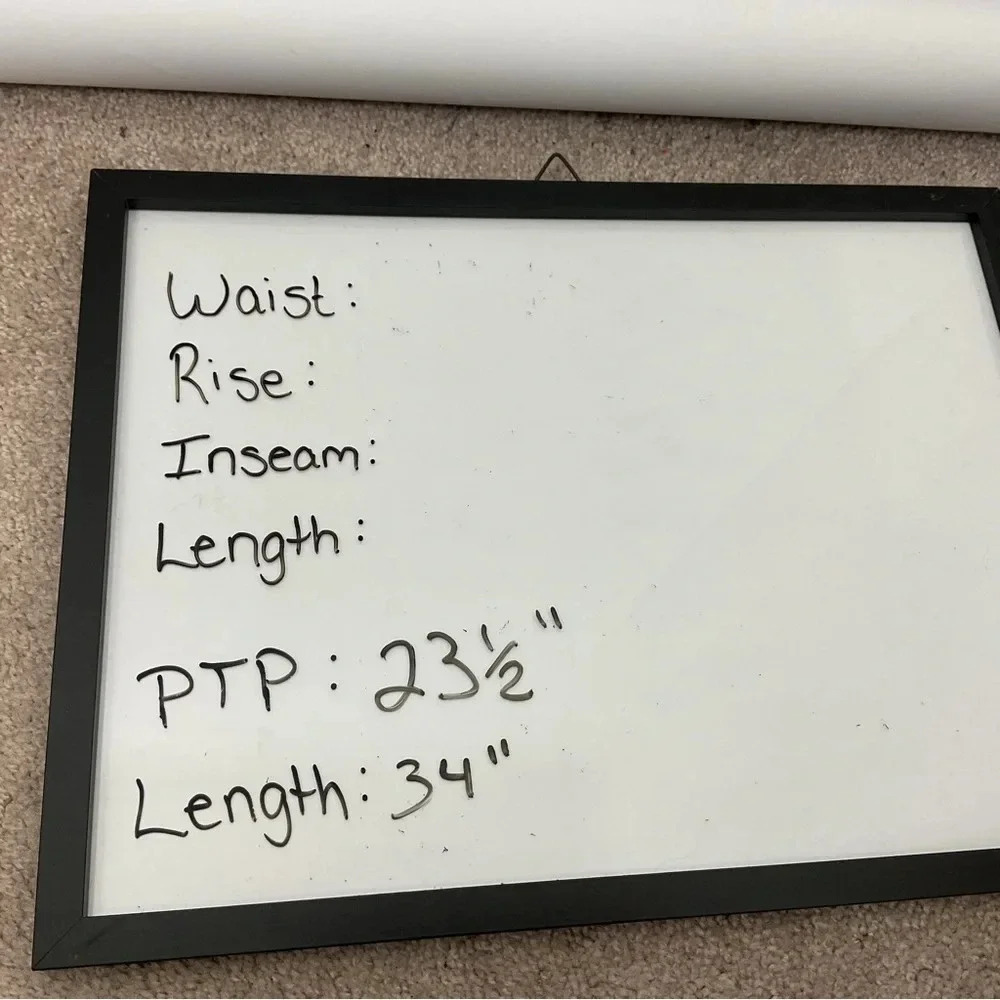 Waist:
Rise:
Inseam:
Length:
PTP: 23½"
Length: 34"